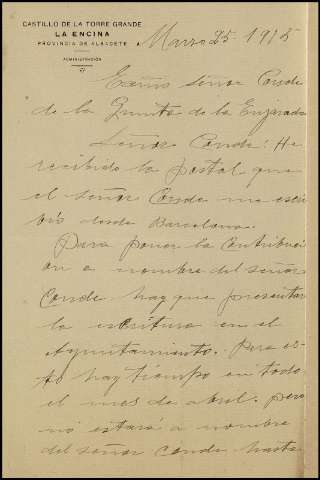 CASTILLO DE LA TORRE GRANDE
LA ENCINA
PROVINCIA DE ALBACETE A Marzo 25 1915
ADMINISTRACIÓN
Exmo Señor Conde
de la Quinta de la Enjarada
Señor Conde: He
recibido la postal que
el señor Conde me escri
bió desde Barcelona.
Para poner la contribuci
on a nombre del señor
Conde hay que presentar
la escritura en el
Ayuntamiento. Para es-
to hay tiempo en todo
el mes de abril. pero
no estará a nombre
del señor Conde hasta